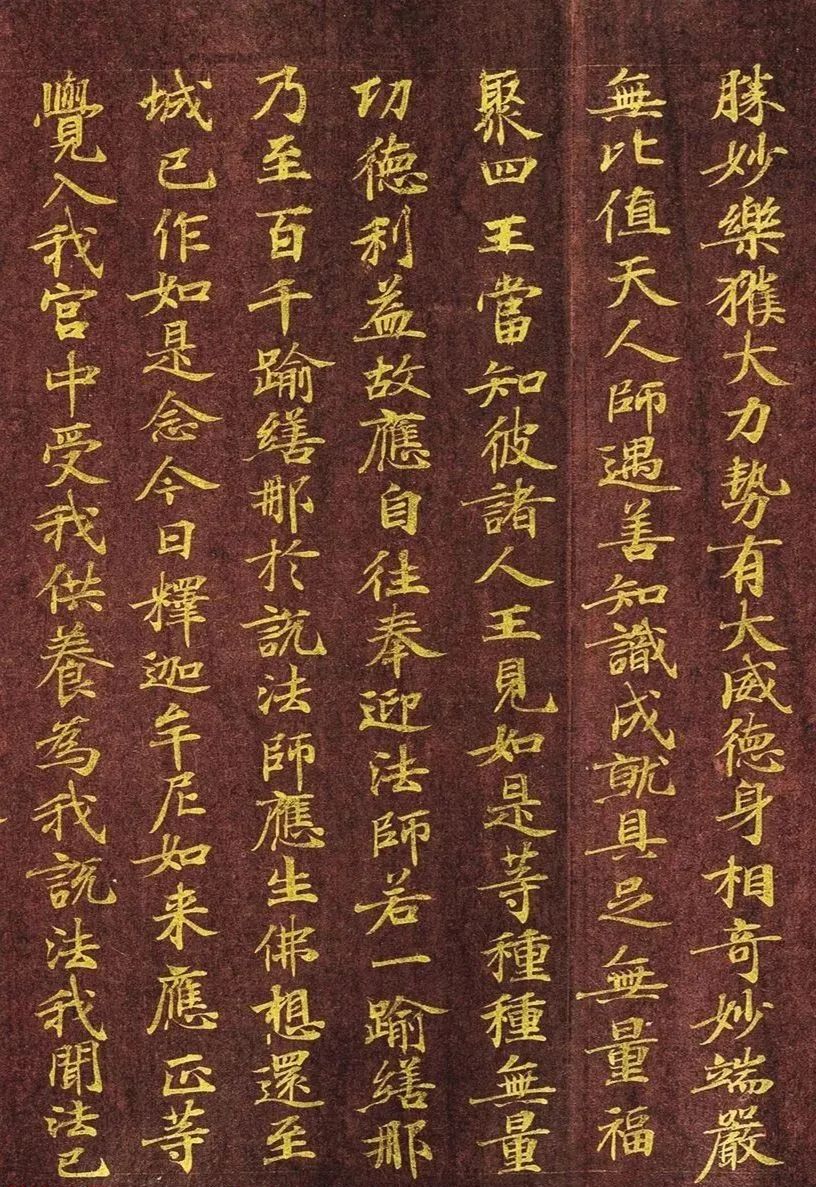 勝妙樂獲大力勢有大威德身相奇妙端嚴
無比值天人師遇善知識成就具足無量福
聚四王當知彼諸人王見如是等種種無量
功德利益故應自往奉迎法師若一踰繕那
乃至百千踰繕那於説法師應生佛想還至
城已作如是念今日釋迦牟尼如来應正等
覺入我宮中受我供養為我説法我聞法已